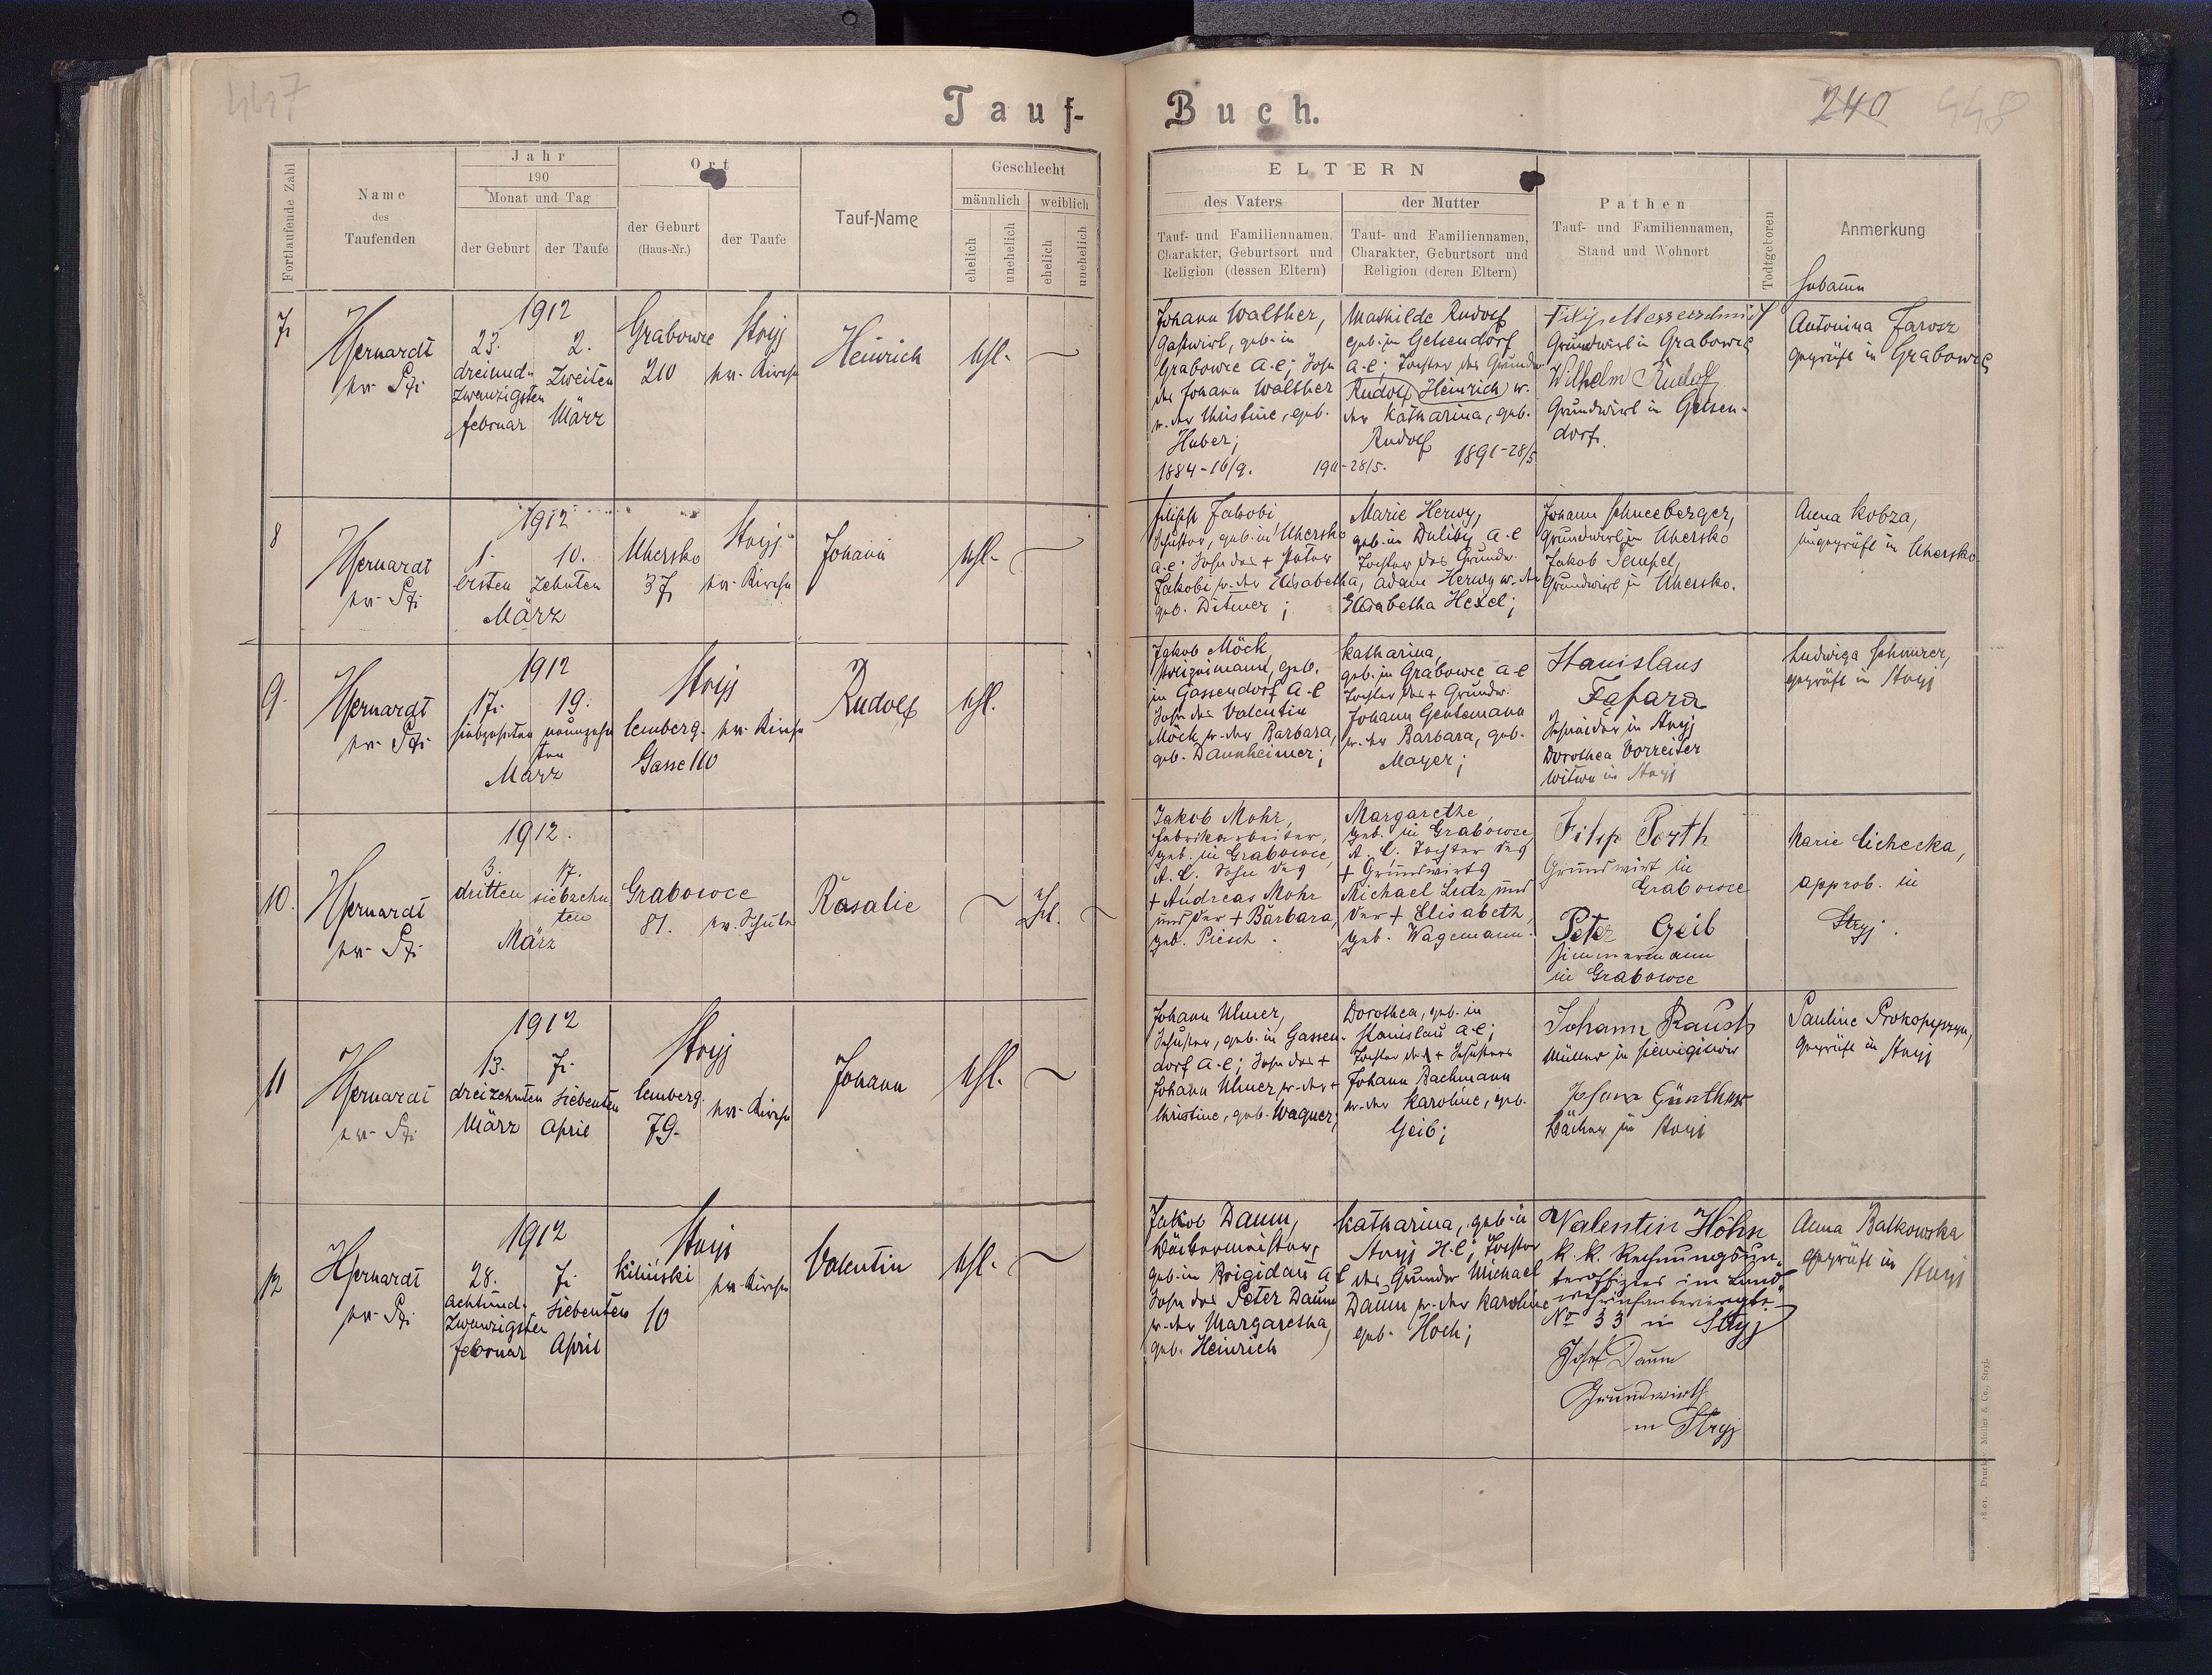 447
Tauf-
Buch.
240 448
Fortlaufende Zahl
Name
des
Taufenden
Jahr
190
Monat und Tag
der Geburt
der Taufe
Ort
der Geburt
(Haus-Nr.)
der Taufe
Tauf-Name
Geschlecht
männlich
weiblich
ehelich
unehelich
ehelich
unehelich
ELTERN
des Vaters
Tauf- und Familiennamen,
Charakter, Geburtsort und
Religion (dessen Eltern)
der Mutter
Tauf- und Familiennamen,
Charakter, Geburtsort und
Religion (deren Eltern)
Pathen
Tauf- und Familiennamen,
Stand und Wohnort
Todtgeboren
Anmerkung
Hebamme
7.
1912
23. 2.
dreiund- Zweiten
zwanzigsten
februar März
Grabowce Stryj
210 ev. Kirche
Heinrich
ehl.
Johann Walther,
Gastwirt, geb. in
Grabowce A.C; Sohn
des Johann Walther
u. der Christine, geb.
Huber;
1884-16/9. 1911-28/5.
Mathilde Rudolf
geb. in Gelsendorf
A.C; Tochter des Grundw.
Rudolf Heinrich u.
der Katharina, geb.
Rudolf 1891-28/5
Filip Messerschmidt
Grundwirt in Grabowce
Wilhelm Rudolf
Grundwirt in Gelsen-
dorf.
Antonina Jarosz
geprüft in Grabowce
8
1912
1. 10.
ersten zehnten
März
Uhersko Stryj
37 ev. Kirche
Johann
ehl.
Filipp Jakobi
Schuster, geb. in Uhersko
A.C. Sohn des + Peter
Jakobi u. der Elisabetha,
geb. Ditmer;
Marie Herwy,
geb. in Duliby A.C
Tochter des Grundw.
Adam Herwy u. der
Elisabetha Hexel;
Johann Schneeberger,
Grundwirt in Uhersko
Jakob Tempel,
Grundwirt in Uhersko.
Anna Kobza,
ungeprüft in Uhersko
9.
1912
17. 19.
siebzehnten neunzehn
ten
März
Stryj
lemberg. ev. Kirche
Gasse 110
Rudolf
ehl.
Jakob Möck,
geb.
in Gassendorf A.C
Sohn des Valentin
Möck u. der Barbara,
geb. Dannheimer;
Katharina,
geb. in Grabowce A.C
Tochter des + Grundw.
Johann Gentemann
u. der Barbara, geb.
Mayer;
Stanislaus
Fafara
Schneider in Stryj
Dorothea Vorreiter
Witwe in Stryj
Ludwiga Schnurer,
geprüft in Stryj
10.
1912.
3. 17.
dritten siebzehn
ten
März
Grabowce
81. ev. Schule
Rosalie
ehl.
Jakob Mohr,
Fabrikarbeiter,
geb. in Grabowce,
A. C. Sohn des
+ Andreas Mohr
und der + Barbara,
geb. Piesch.
Margarethe,
geb. in Grabowce
A. C. Tochter des
+ Grundwirts
Michael Lutz und
der + Elisabeth,
geb. Wagemann.
Filip Porth
Grundwirt in
Grabowce
Peter Geib
Zimmermann
in Grabowce
Marie Cichecka,
approb. in
Stryj.
11
1912
13. 7.
dreizehnten siebenten
März April
Stryj
lemberg. ev. Kirche
79.
Johann
ehl.
Johann Ulmer,
Schuster, geb. in Gassen-
dorf A.C; Sohn des +
Johann Ulmer u. der +
Christine, geb. Wagner;
Dorothea, geb. in
Stanislau A.C;
Tochter des + Schusters
Johann Bachmann
u. der Karoline, geb.
Geib;
Johann Rausch
Müller in
Johann Günther
Bäcker in Stryj
Pauline Prokopyszyn,
geprüft in Stryj
12
1912
28. 7.
achtund- siebenten
zwanzigsten
februar April
Stryj
Kilinski ev. Kirche
10
Valentin
ehl.
Jakob Daum,
geb. in Brigidau A.C
Sohn des Peter Daum
u. der Margaretha,
geb. Heinrich
Katharina, geb. in
Stryj H.C; Tochter
des Grundw Michael
Daum u. der Karoline
geb. Hoch;
Valentin Höhn
K. K. Rechnungsun-
teroffizier im Land-
No 33 in Stryj
Josef Daum
Grundwirth
in Stryj
Anna Balkowska
geprüft in Stryj
18.01. Druck v. Müller & Co., Stryj.